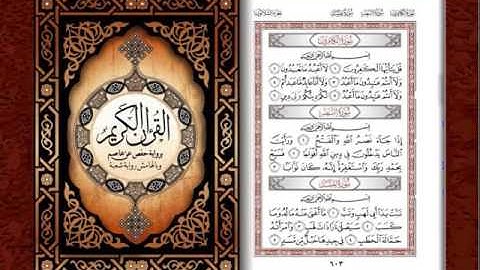 القرآن الكريم
برواية حفص عن عاصم
وبالهامش رواية شعبة
سُورَةُ الكَافِرُونَ
بِسْمِ ٱللَّهِ ٱلرَّحْمَٰنِ ٱلرَّحِيمِ
قُلْ يَٰٓأَيُّهَا ٱلْكَٰفِرُونَ ١ لَآ أَعْبُدُ مَا تَعْبُدُونَ ٢
وَلَآ أَنتُمْ عَٰبِدُونَ مَآ أَعْبُدُ ٣ وَلَآ أَنَا۠ عَابِدٌ مَّا عَبَدتُّمْ ٤
وَلَآ أَنتُمْ عَٰبِدُونَ مَآ أَعْبُدُ ٥ لَكُمْ دِينُكُمْ وَلِيَ دِينِ ٦
سُورَةُ النَّصْرِ
بِسْمِ ٱللَّهِ ٱلرَّحْمَٰنِ ٱلرَّحِيمِ
إِذَا جَآءَ نَصْرُ ٱللَّهِ وَٱلْفَتْحُ ١ وَرَأَيْتَ
ٱلنَّاسَ يَدْخُلُونَ فِى دِينِ ٱللَّهِ أَفْوَاجًا ٢ فَسَبِّحْ
بِحَمْدِ رَبِّكَ وَٱسْتَغْفِرْهُ إِنَّهُۥ كَانَ تَوَّابًۢا ٣
سُورَةُ المَسَدِ
بِسْمِ ٱللَّهِ ٱلرَّحْمَٰنِ ٱلرَّحِيمِ
تَبَّتْ يَدَآ أَبِى لَهَبٍ وَتَبَّ ١ مَآ أَغْنَىٰ عَنْهُ مَالُهُۥ وَمَا
كَسَبَ ٢ سَيَصْلَىٰ نَارًا ذَاتَ لَهَبٍ ٣ وَٱمْرَأَتُهُۥ
حَمَّالَةَ ٱلْحَطَبِ ٤ فِى جِيدِهَا حَبْلٌ مِّن مَّسَدٍۭ ٥
٦٠٣